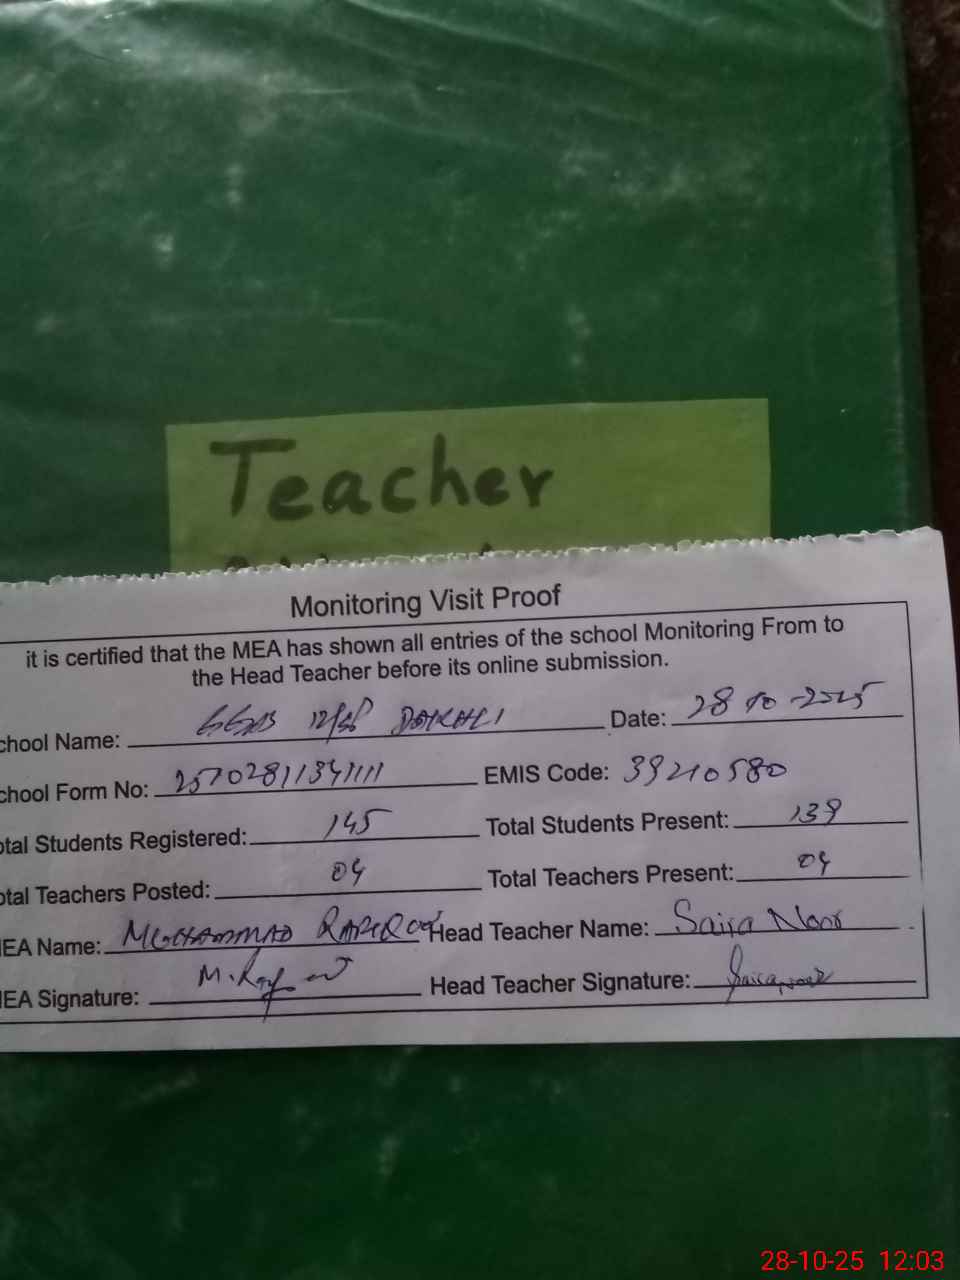 Teacher
Monitoring Visit Proof
it is certified that the MEA has shown all entries of the school Monitoring From to
the Head Teacher before its online submission.
chool Name: Date: 28 10 -2025
chool Form No: EMIS Code: 39210580
otal Students Registered: 145 Total Students Present: 139
otal Teachers Posted: 04 Total Teachers Present: 04
EA Name: MUHAMMAD Head Teacher Name: Saira Noor
EA Signature: Head Teacher Signature:
28-10-25 12:03